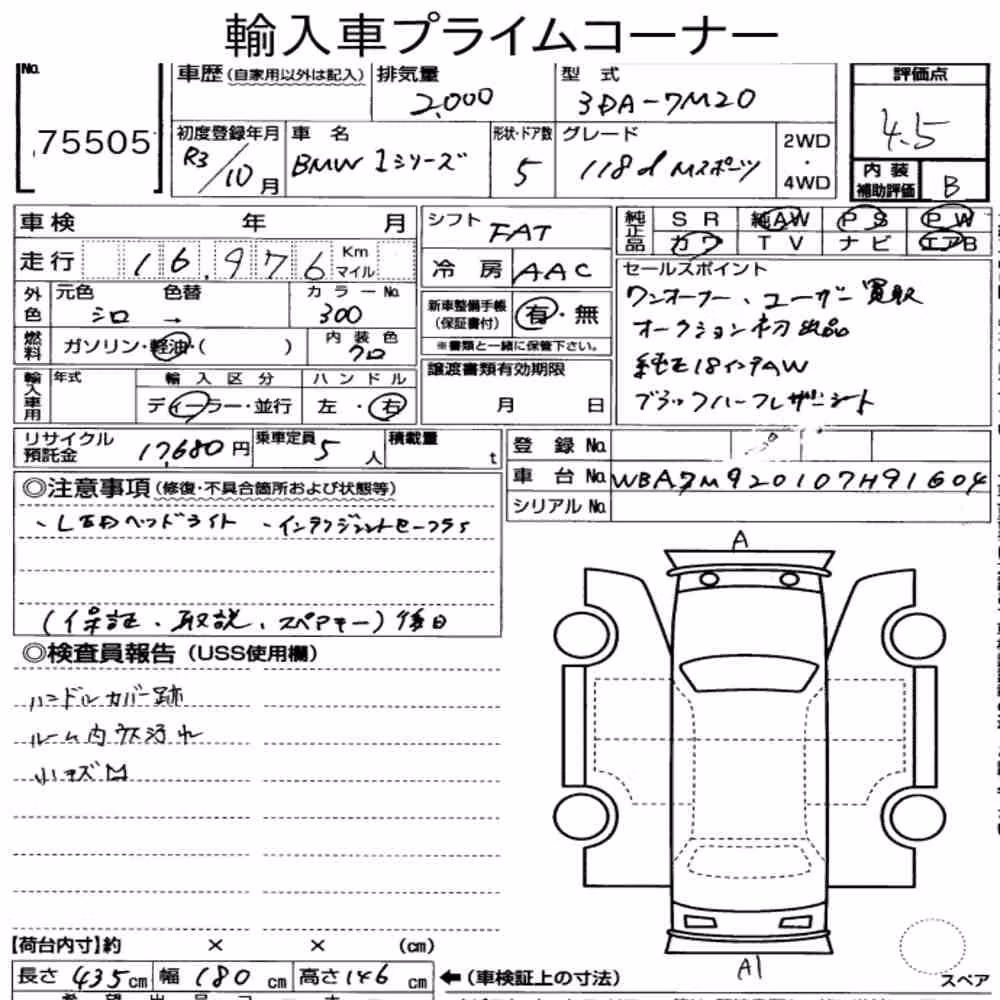 輸入車プライムコーナー
No. 75505
車歴(自家用以外は記入) 排気量 2,000 型式 3DA-7M20 評価点 4.5
初度登録年月 R3/10月 車名 BMW 1シリーズ 形状・ドア数 5 グレード 118d Mスポーツ 2WD・4WD 内装補助評価 B
車検 年 月 シフト FAT 純正品 SR 純AW PS PW
カワ TV ナビ エアB
走行 16,976 Km マイル 冷房 AAC セールスポイント
ワンオーナー、ユーザー買取
外色 元色 シロ 色替 → カラーNo. 300 新車整備手帳(保証書付) 有・無
オークション初出品
燃料 ガソリン・軽油・( ) 内装色 クロ ※書類と一緒に保管下さい。
純正18インチAW
輸入車用 年式 輸入区分 ハンドル 譲渡書類有効期限
ディーラー・並行 左・右 月 日
ブラックハーフレザーシート
リサイクル預託金 17,680円 乗車定員 5人 積載量 t 登録No.
車台No. WBA7M920107H91604
シリアルNo.
◎注意事項(修復・不具合箇所および状態等)
・LEDヘッドライト ・インテリジェントセーフティ
(保証、取説、スペアキー)後日
◎検査員報告(USS使用欄)
ハンドルカバー跡
ルーム内ウス汚れ
小キズM
A
A1
【荷台内寸】約 × × (cm)
長さ 435cm 幅 180cm 高さ 146cm ←(車検証上の寸法) スペア